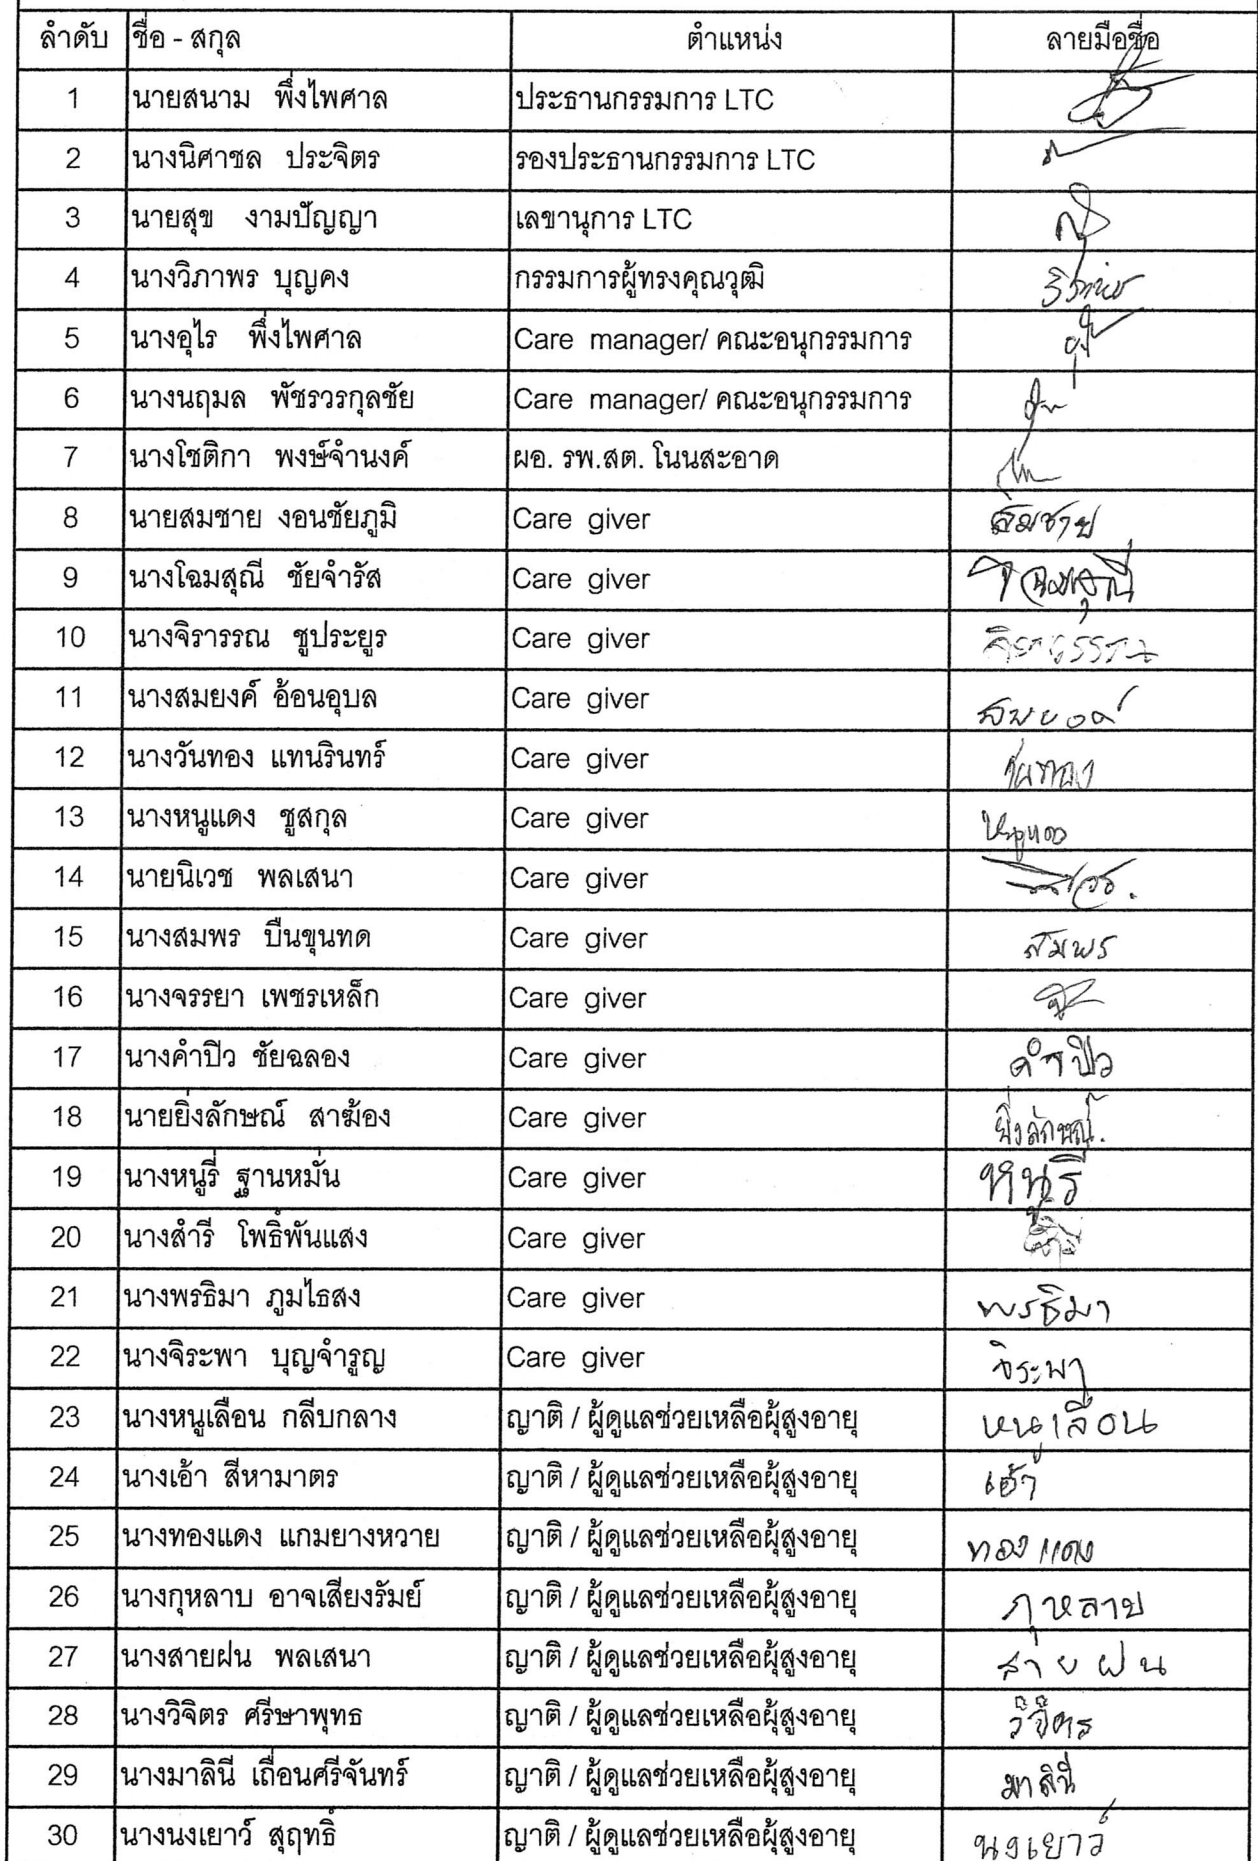 ลำดับ ชื่อ - สกุล ตำแหน่ง ลายมือชื่อ
1 นายสนาม พึ่งไพศาล ประธานกรรมการ LTC
2 นางนิศาชล ประจิตร รองประธานกรรมการ LTC
3 นายสุข งามปัญญา เลขานุการ LTC
4 นางวิภาพร บุญคง กรรมการผู้ทรงคุณวุฒิ วิภาพร
5 นางอุไร พึ่งไพศาล Care manager/ คณะอนุกรรมการ
6 นางนฤมล พัชรวรกุลชัย Care manager/ คณะอนุกรรมการ
7 นางโชติกา พงษ์จำนงค์ ผอ. รพ.สต. โนนสะอาด
8 นายสมชาย งอนชัยภูมิ Care giver สมชาย
9 นางโฉมสุณี ชัยจำรัส Care giver โฉมสุณี
10 นางจิรารรณ ชูประยูร Care giver
11 นางสมยงค์ อ้อนอุบล Care giver สมยงค์
12 นางวันทอง แทนรินทร์ Care giver วันทอง
13 นางหนูแดง ชูสกุล Care giver หนูแดง
14 นายนิเวช พลเสนา Care giver
15 นางสมพร ปีนขุนทด Care giver สมพร
16 นางจรรยา เพชรเหล็ก Care giver
17 นางคำปิว ชัยฉลอง Care giver คำปิว
18 นายยิ่งลักษณ์ สาฆ้อง Care giver ยิ่งลักษณ์.
19 นางหนูรี่ ฐานหมั่น Care giver หนูรี
20 นางสำรี โพธิ์พันแสง Care giver
21 นางพรธิมา ภูมไธสง Care giver พรธิมา
22 นางจิระพา บุญจำรูญ Care giver จิระพา
23 นางหนูเลือน กลีบกลาง ญาติ / ผู้ดูแลช่วยเหลือผู้สูงอายุ หนูเลือน
24 นางเอ้า สีหามาตร ญาติ / ผู้ดูแลช่วยเหลือผู้สูงอายุ เอ้า
25 นางทองแดง แกมยางหวาย ญาติ / ผู้ดูแลช่วยเหลือผู้สูงอายุ ทองแดง
26 นางกุหลาบ อาจเสียงรัมย์ ญาติ / ผู้ดูแลช่วยเหลือผู้สูงอายุ กุหลาบ
27 นางสายฝน พลเสนา ญาติ / ผู้ดูแลช่วยเหลือผู้สูงอายุ สายฝน
28 นางวิจิตร ศรีษาพุทธ ญาติ / ผู้ดูแลช่วยเหลือผู้สูงอายุ วิจิตร
29 นางมาลินี เถื่อนศรีจันทร์ ญาติ / ผู้ดูแลช่วยเหลือผู้สูงอายุ มาลินี
30 นางนงเยาว์ สุฤทธิ์ ญาติ / ผู้ดูแลช่วยเหลือผู้สูงอายุ นงเยาว์